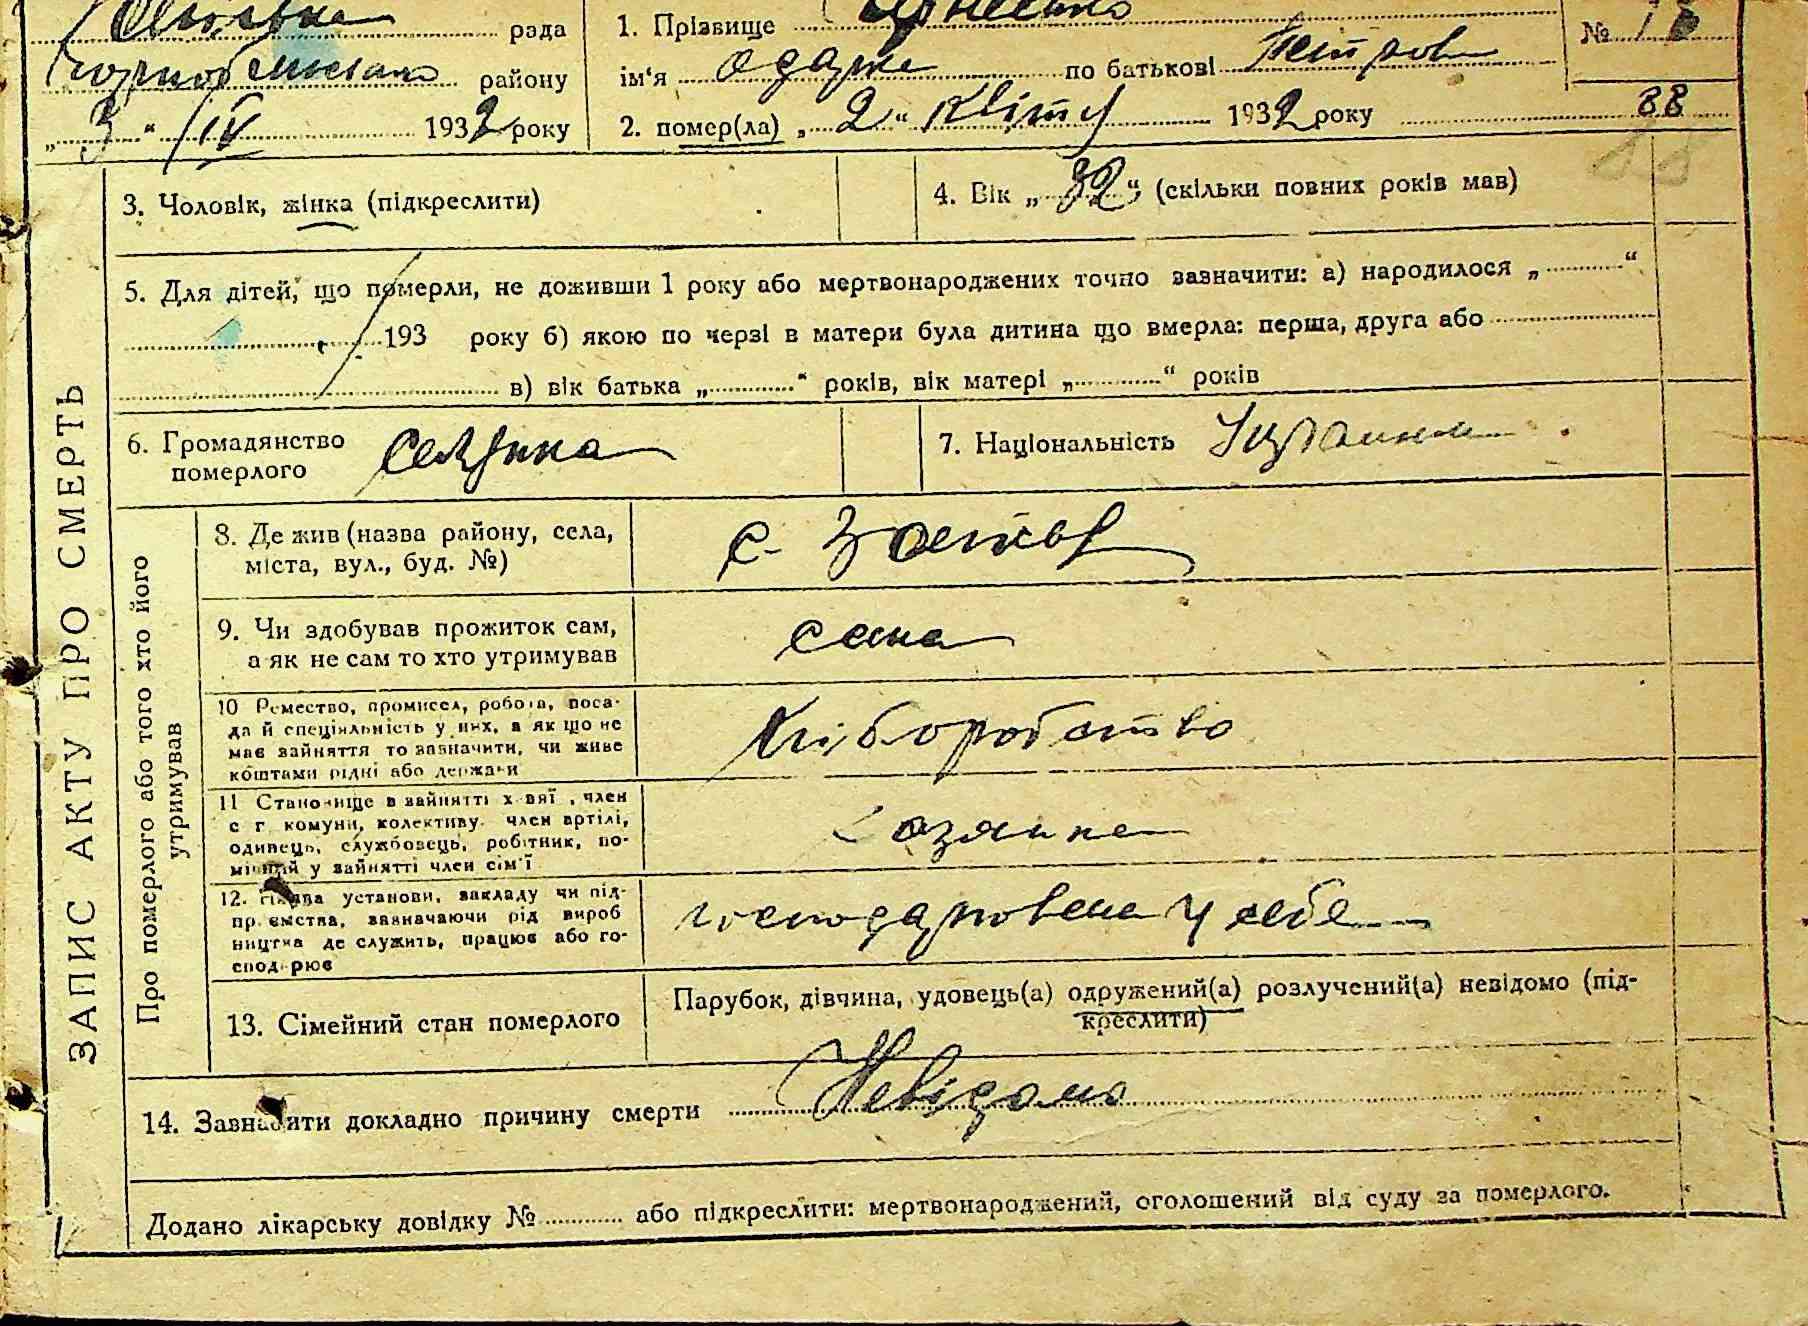 рада 1. Прізвище №
району ім‘я одарка по батькові Петров
„ 3 “ IV 1932 року 2. помер(ла) „ 2 “ Квітня 1932 року 88
3. Чоловік, жінка (підкреслити) 4. Вік „ 32 “ (скільки повних років мав)
5. Для дітей, що померли, не доживши 1 року або мертвонароджених точно зазначити: а) народилося „ “
193 року б) якою по черзі в матери була дитина що вмерла: перша, друга або
в) вік батька „ “ років, вік матері „ “ років
6. Громадянство померлого селянка 7. Національність Українка
ЗАПИС АКТУ ПРО СМЕРТЬ
Про померлого або того хто його утримував
8. Де жив (назва району, села,
міста, вул., буд. №) с.
9. Чи здобував прожиток сам,
а як не сам то хто утримував сама
10 Ремество, промисел, робота, поса-
да й спеціяльність у них, а як що не
має зайняття то зазначити, чи живе
коштами рідні або держави Хліборобство
11 Становище в зайнятті х-вяї, член
с г. комуни, колективу, член артілі,
одинець, службовець, робітник, по-
мічний у зайнятті член сім'ї хазяйка
12. Назва установи, закладу чи під-
приємства, зазначаючи рід вироб
ництва де служить, працює або го-
сподарює господарювала у себе
13. Сімейний стан померлого Парубок, дівчина, удовець(а) одружений(а) розлучений(а) невідомо (під-
креслити)
14. Зазначити докладно причину смерти Невідомо
Додано лікарську довідку № або підкреслити: мертвонароджений, оголошений від суду за померлого.